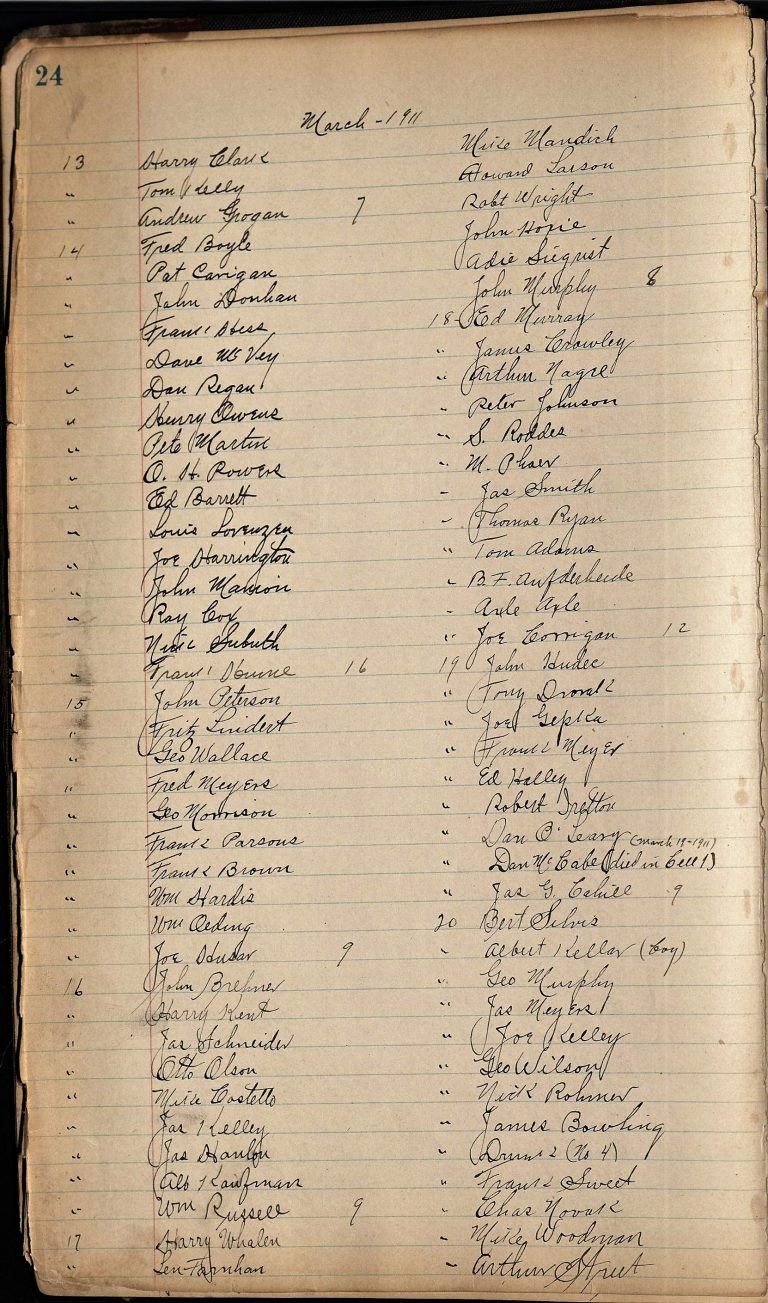 24
March - 1911
13 Harry Clark
" Tom Kelly
" Andrew Grogan 7
14 Fred Boyle
" Pat Carigan
" John Donhan
" Frank Hess
" Dave McVey
" Dan Regan
" Henry Owens
" Pete Martin
" O. H. Rowers
" Ed Barrett
" Louis Lorenzen
" Joe Harrington
" John Manion
" Ray Cox
" Nick Subuth
" Frank Hurne 16
15 John Peterson
" Fritz Lindert
" Geo Wallace
" Fred Meyers
" Geo Morrison
" Frank Parsons
" Frank Brown
" Wm Hardis
" Wm Oeding
" Joe Husar 9
16 John Brehner
" Harry Kent
" Jas Schneider
" Otto Olson
" Mike Costello
" Jas Kelley
" Jas Hanlon
" Alb Kaufman
" Wm Russell 9
17 Harry Whalen
" Len Farnhan
Mike Mandich
Howard Larson
Robt Wright
John
Adie Siegrist
John Murphy 8
18 Ed Murray
" James Crowley
" Arthur Nagre
" Peter Johnson
" S. Roddes
" M. Phser
" Jas Smith
" Thomas Ryan
" Tom Adams
" B.F. Aufderheide
" Axle Axle
" Joe Corrigan 12
19 John Hudec
" Tony Dvorak
" Joe Gepka
" Frank Meyer
" Ed Halley
" Robert Tretton
" Dan O'Leary (March 19-1911)
" Dan McCabe (died in Cell 1)
" Jas G. Cahill 9
20 Bert Silvis
" Albert Kellar (Boy)
" Geo Murphy
" Jas Meyers
" Joe Kelley
" Geo Wilson
" Nick Rohmer
" James Bowling
" Drunk 2 (No 4)
" Frank Sweet
" Chas Novak
" Mike Woodman
" Arthur Street